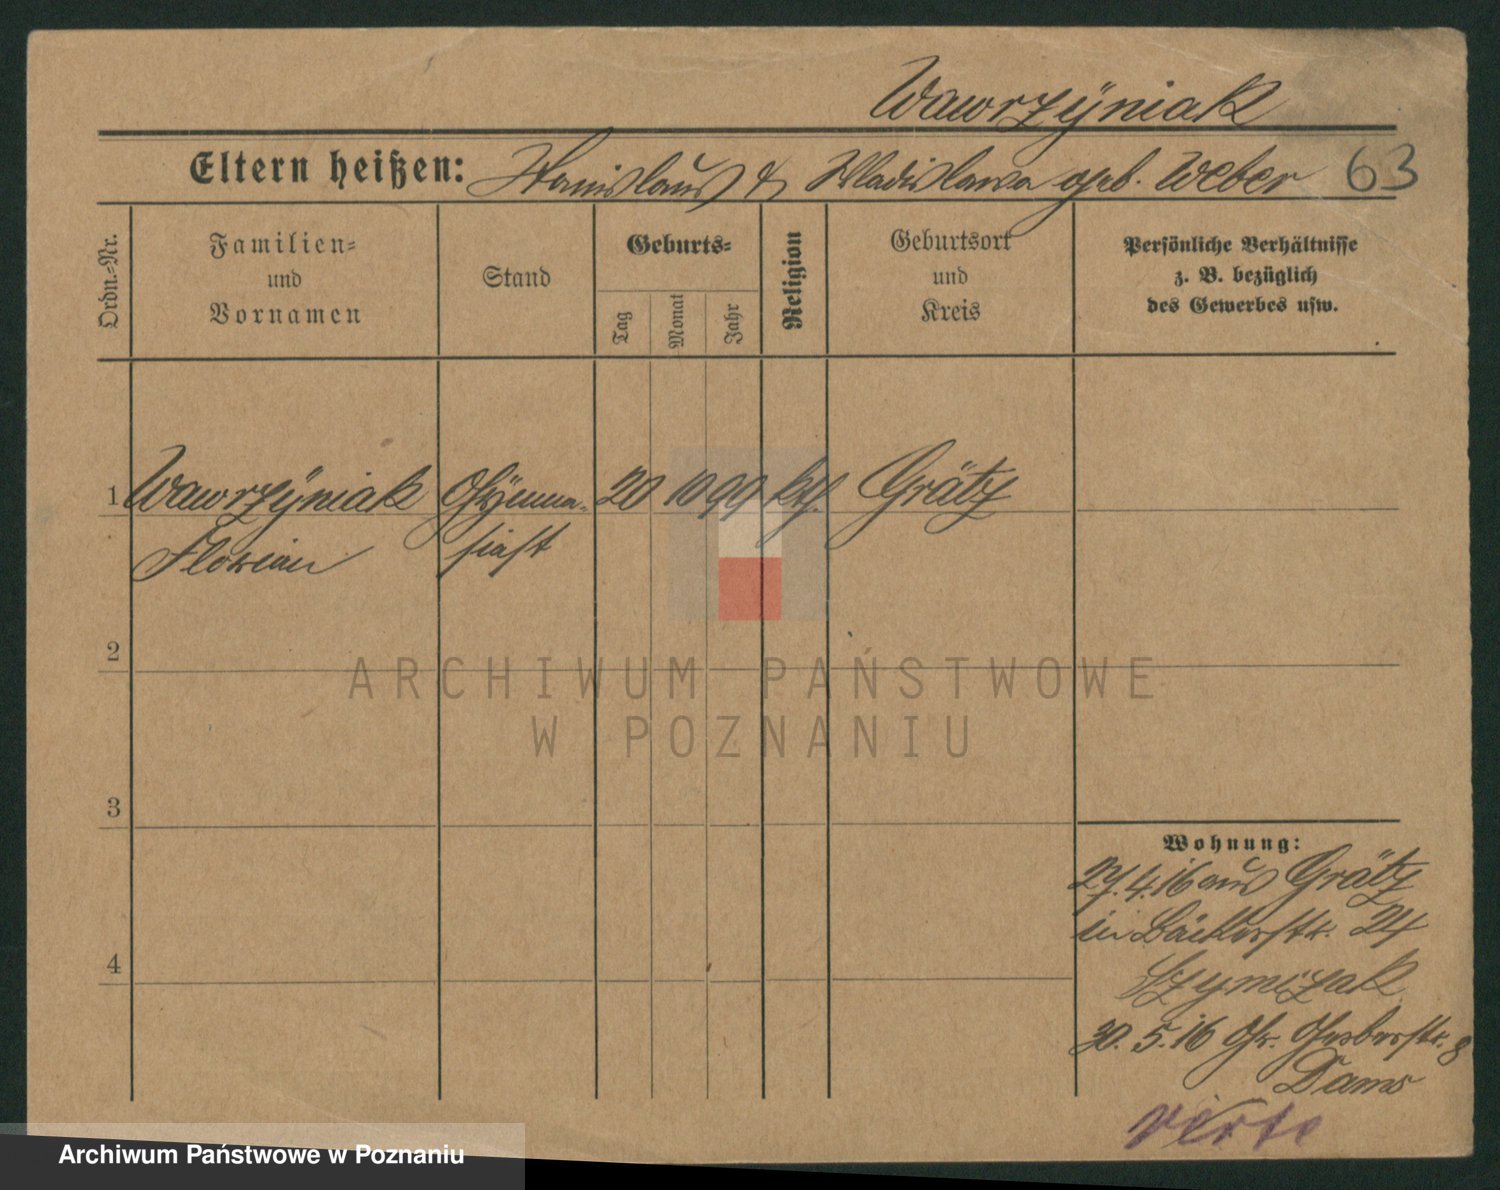 Wawrzÿniak
Eltern heißen: Stanislaus & Wladislawa geb. Weber 63
Ordn.-Nr.
Familien-
und
Vornamen
Stand
Geburts-
Tag
Monat
Jahr
Religion
Geburtsort
und
Kreis
Persönliche Verhältnisse
z. B. bezüglich
des Gewerbes usw.
1 Wawrzÿniak Gÿmna- 20 10 99 kth. Grätz
Florian siast
2
ARCHIWUM PAŃSTWOWE
W POZNANIU
3
Wohnung:
27.4.16 aus Grätz
in Bäckerstr. 24
Szymczak
4
30.5.16 Gr. Gerberstr. 8
Dams
verte
Archiwum Państwowe w Poznaniu